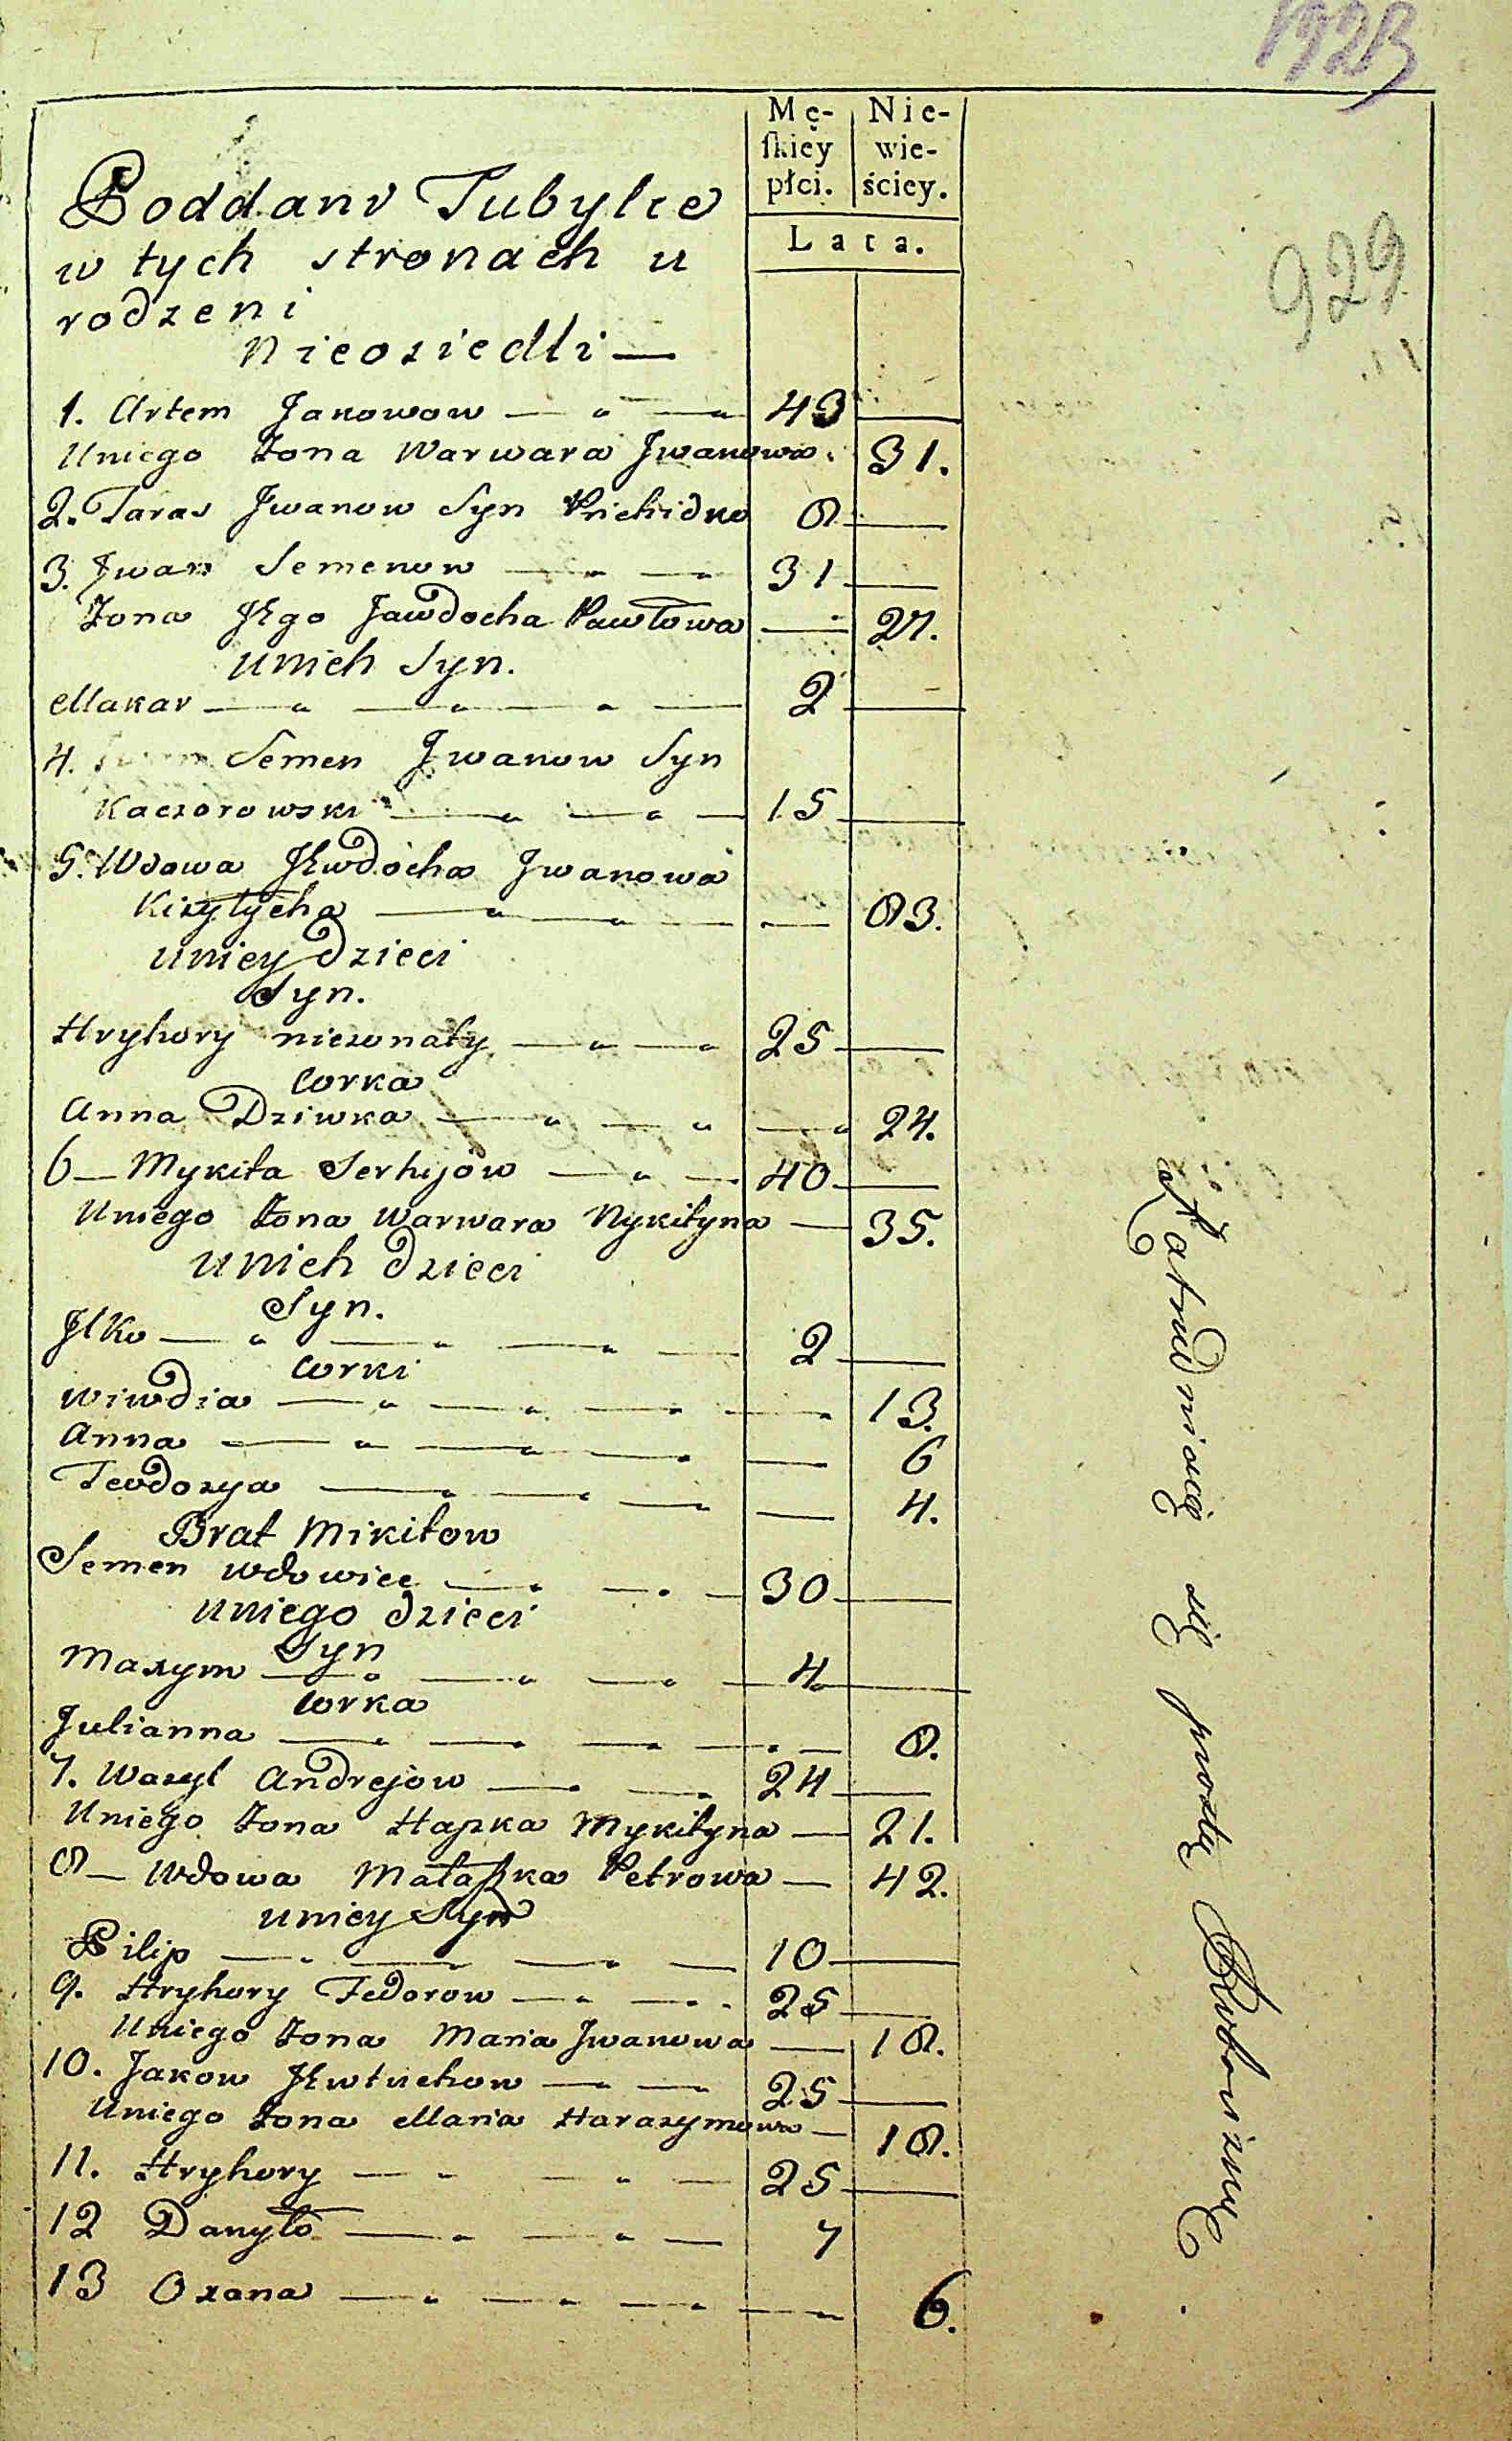 Mę-
skiey
płci.
Nie-
wie-
ściey.
Lata.
929
Poddani Tubylce
w tych stronach u
rodzeni
Nieosiedli —
1. Artem Jakowow — 43 —
Uniego Żona Warwara Jwanowa. 31.
2. Taras Jwanow Syn Prichidko 8. —
3. Jwan Semenow — 31 —
Żona Jego Jawdocha Pawłowa — 27.
unich Syn.
Makar — 2 —
4. Semen Jwanow Syn
Kaczorowski — 15 —
5. Wdowa Jewdocha Jwanowa
Kiryłycha — 83.
uniey Dzieci
Syn.
Hryhory nieżonaty — 25 —
Corka
Anna Dziwka — 24.
6 — Mykita Serhijow — 40 —
Uniego Żona Warwara Nykityna — 35.
unich Dzieci
Syn.
Jlko — 2 —
Corki
Wiwdia — 13.
Anna — 6
Teodozya — 4.
Brat Mikitow
Semen Wdowiec — 30 —
uniego Dzieci
Syn
Maxym — 4 —
Corka
Julianna — 8.
7. Wasyl Andrejow — 24 —
Uniego Żona Hapka Mykityna — 21.
8 — Wdowa Małaszka Petrowa — 42.
uniey Syn
Pilip — 10 —
9. Hryhory Fedorow — 25 —
Uniego Żona Maria Jwanowa — 18.
10. Jakow Jewtuchow — 25 —
Uniego Żona Maria Harasymowa — 18.
11. Hryhory — 25 —
12 Danyło — 7
13 Oxana — 6.
Zatrudniaią się prostą Robocizną